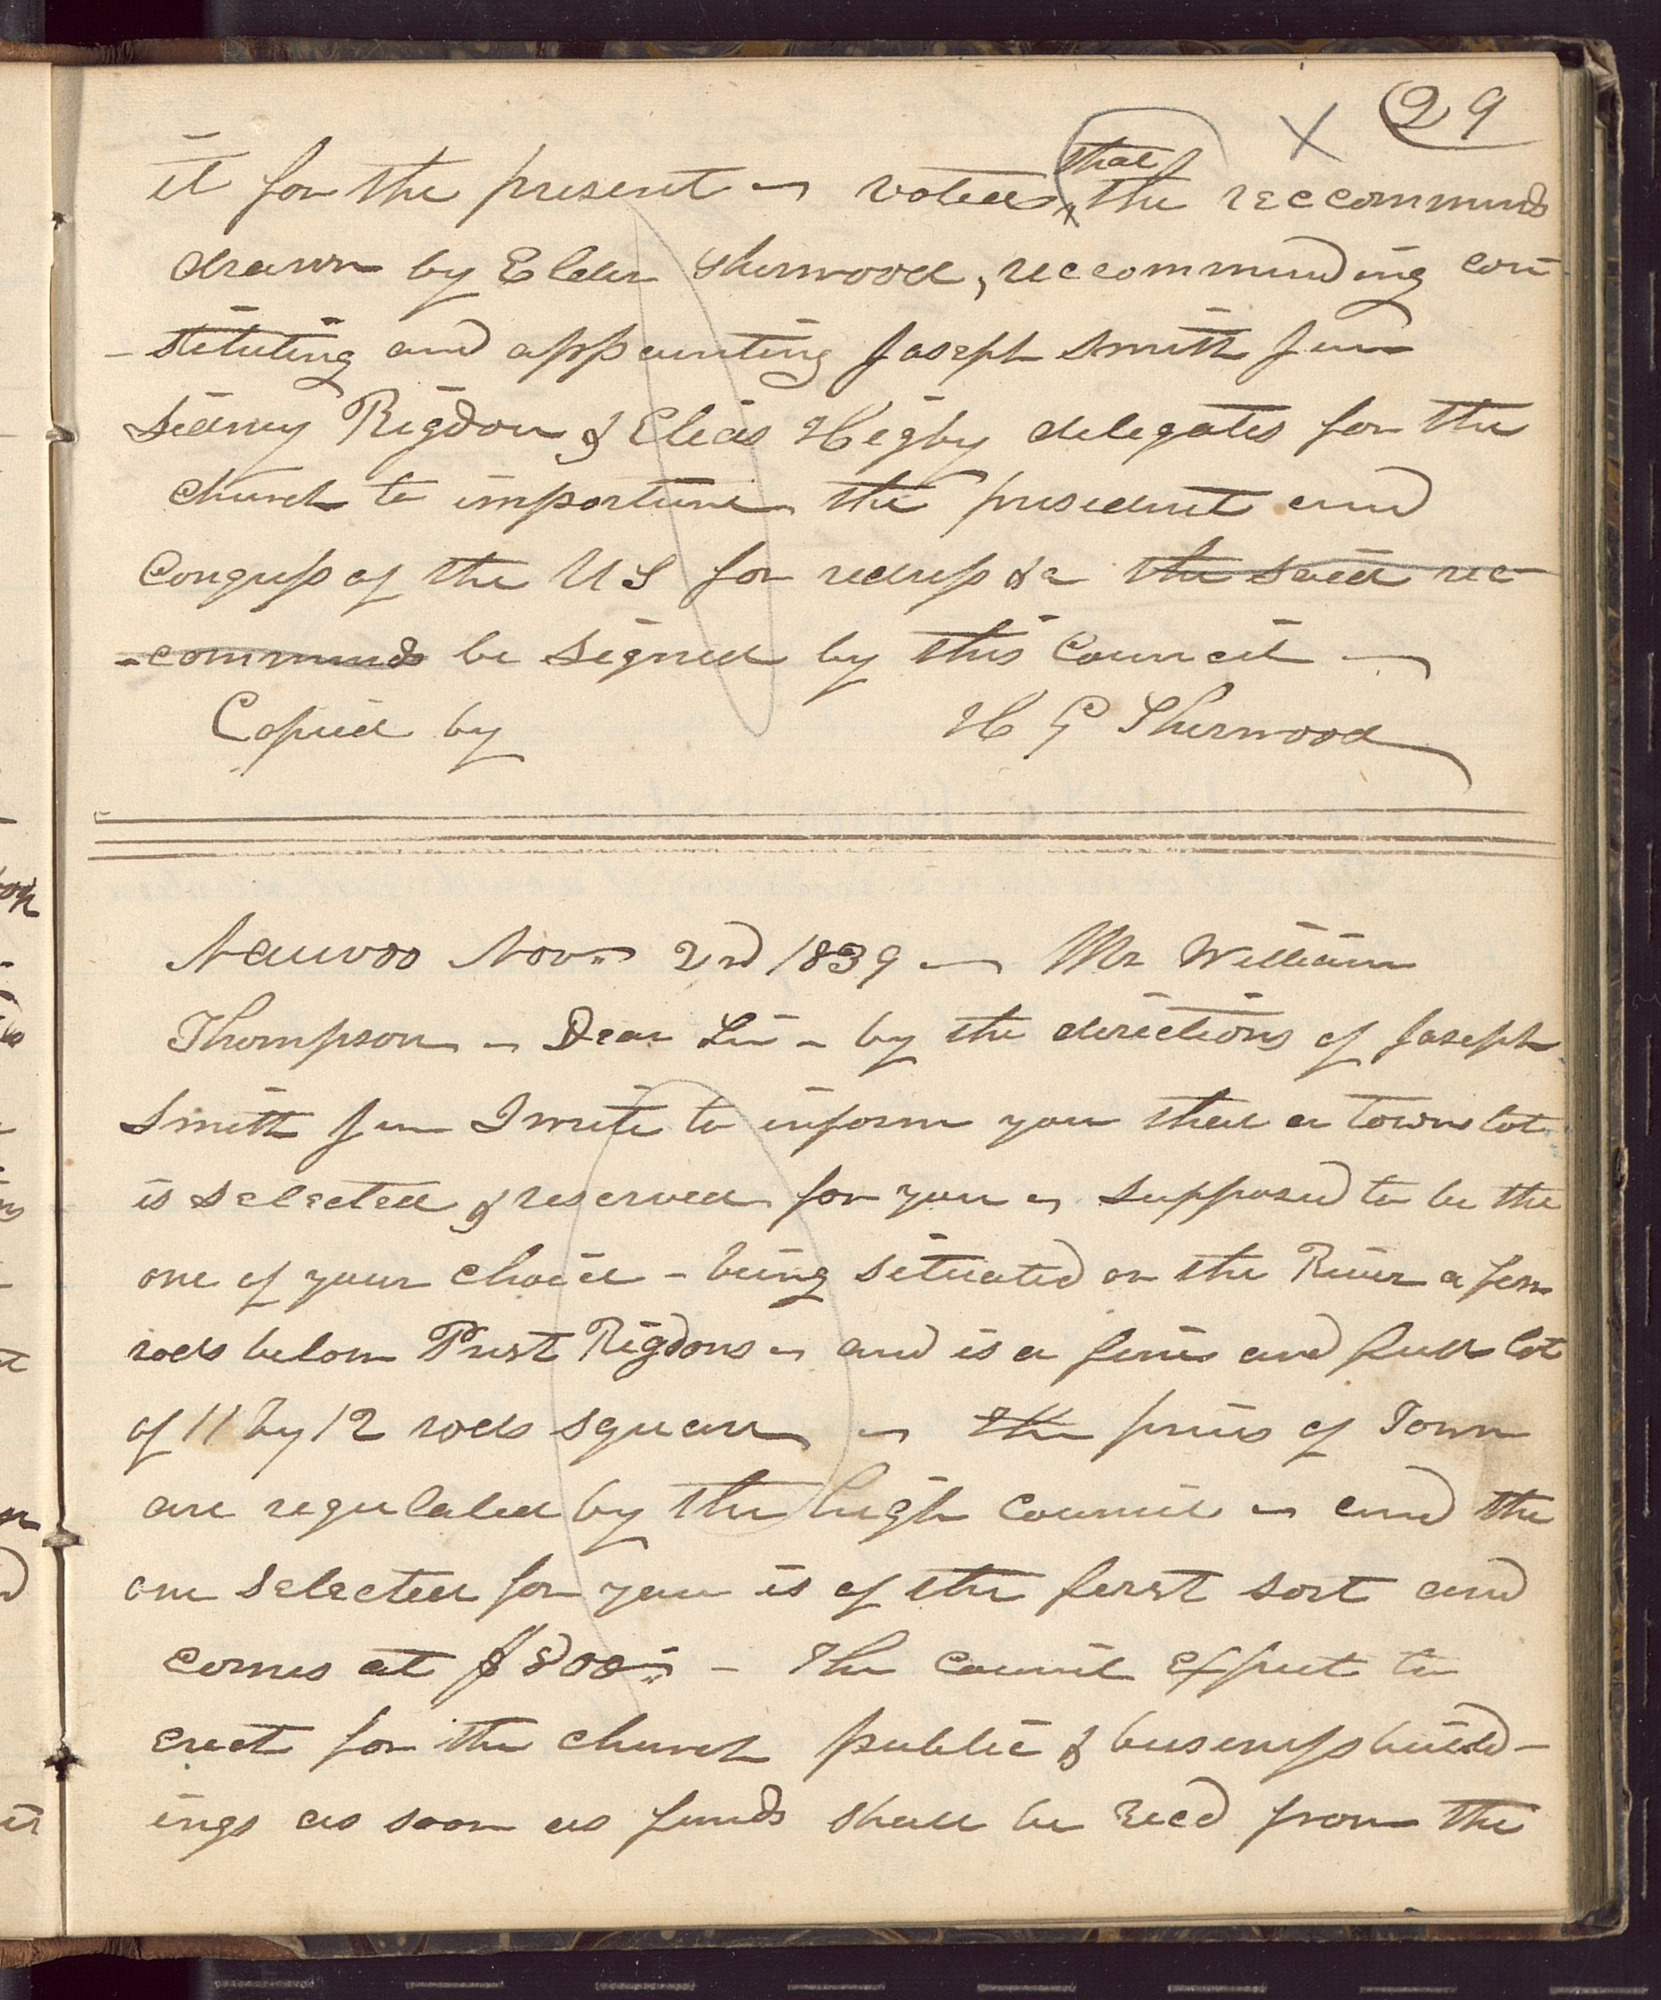 29
it for the present – voted that the reccommend
drawn by Elder Sherwood, reccommending con
-stituting and appointing Joseph Smith Jun
Sidney Rigdon & Elias Higby delegates for the
church to importune the president and
Congress of the US for redress &c the said rec-
-commends be signed by this Council –
Copied by H G Sherwood
Nauvoo Nov. 2nd 1839 – Mr William
Thompson – Dear Sir – by the directions of Joseph
Smith Jun I write to inform you that a town lot
is selected & reserved for you – supposed to be the
one of your choice – being situated on the River a few
rods below Prest Rigdons – and is a fine and full lot
of 11 by 12 rods square – the prices of Town
are regulated by the high council – and the
one selected for you is of the first sort and
comes at $800 – The council expect to
erect for the church public & business build-
ings as soon as funds shall be recd from the